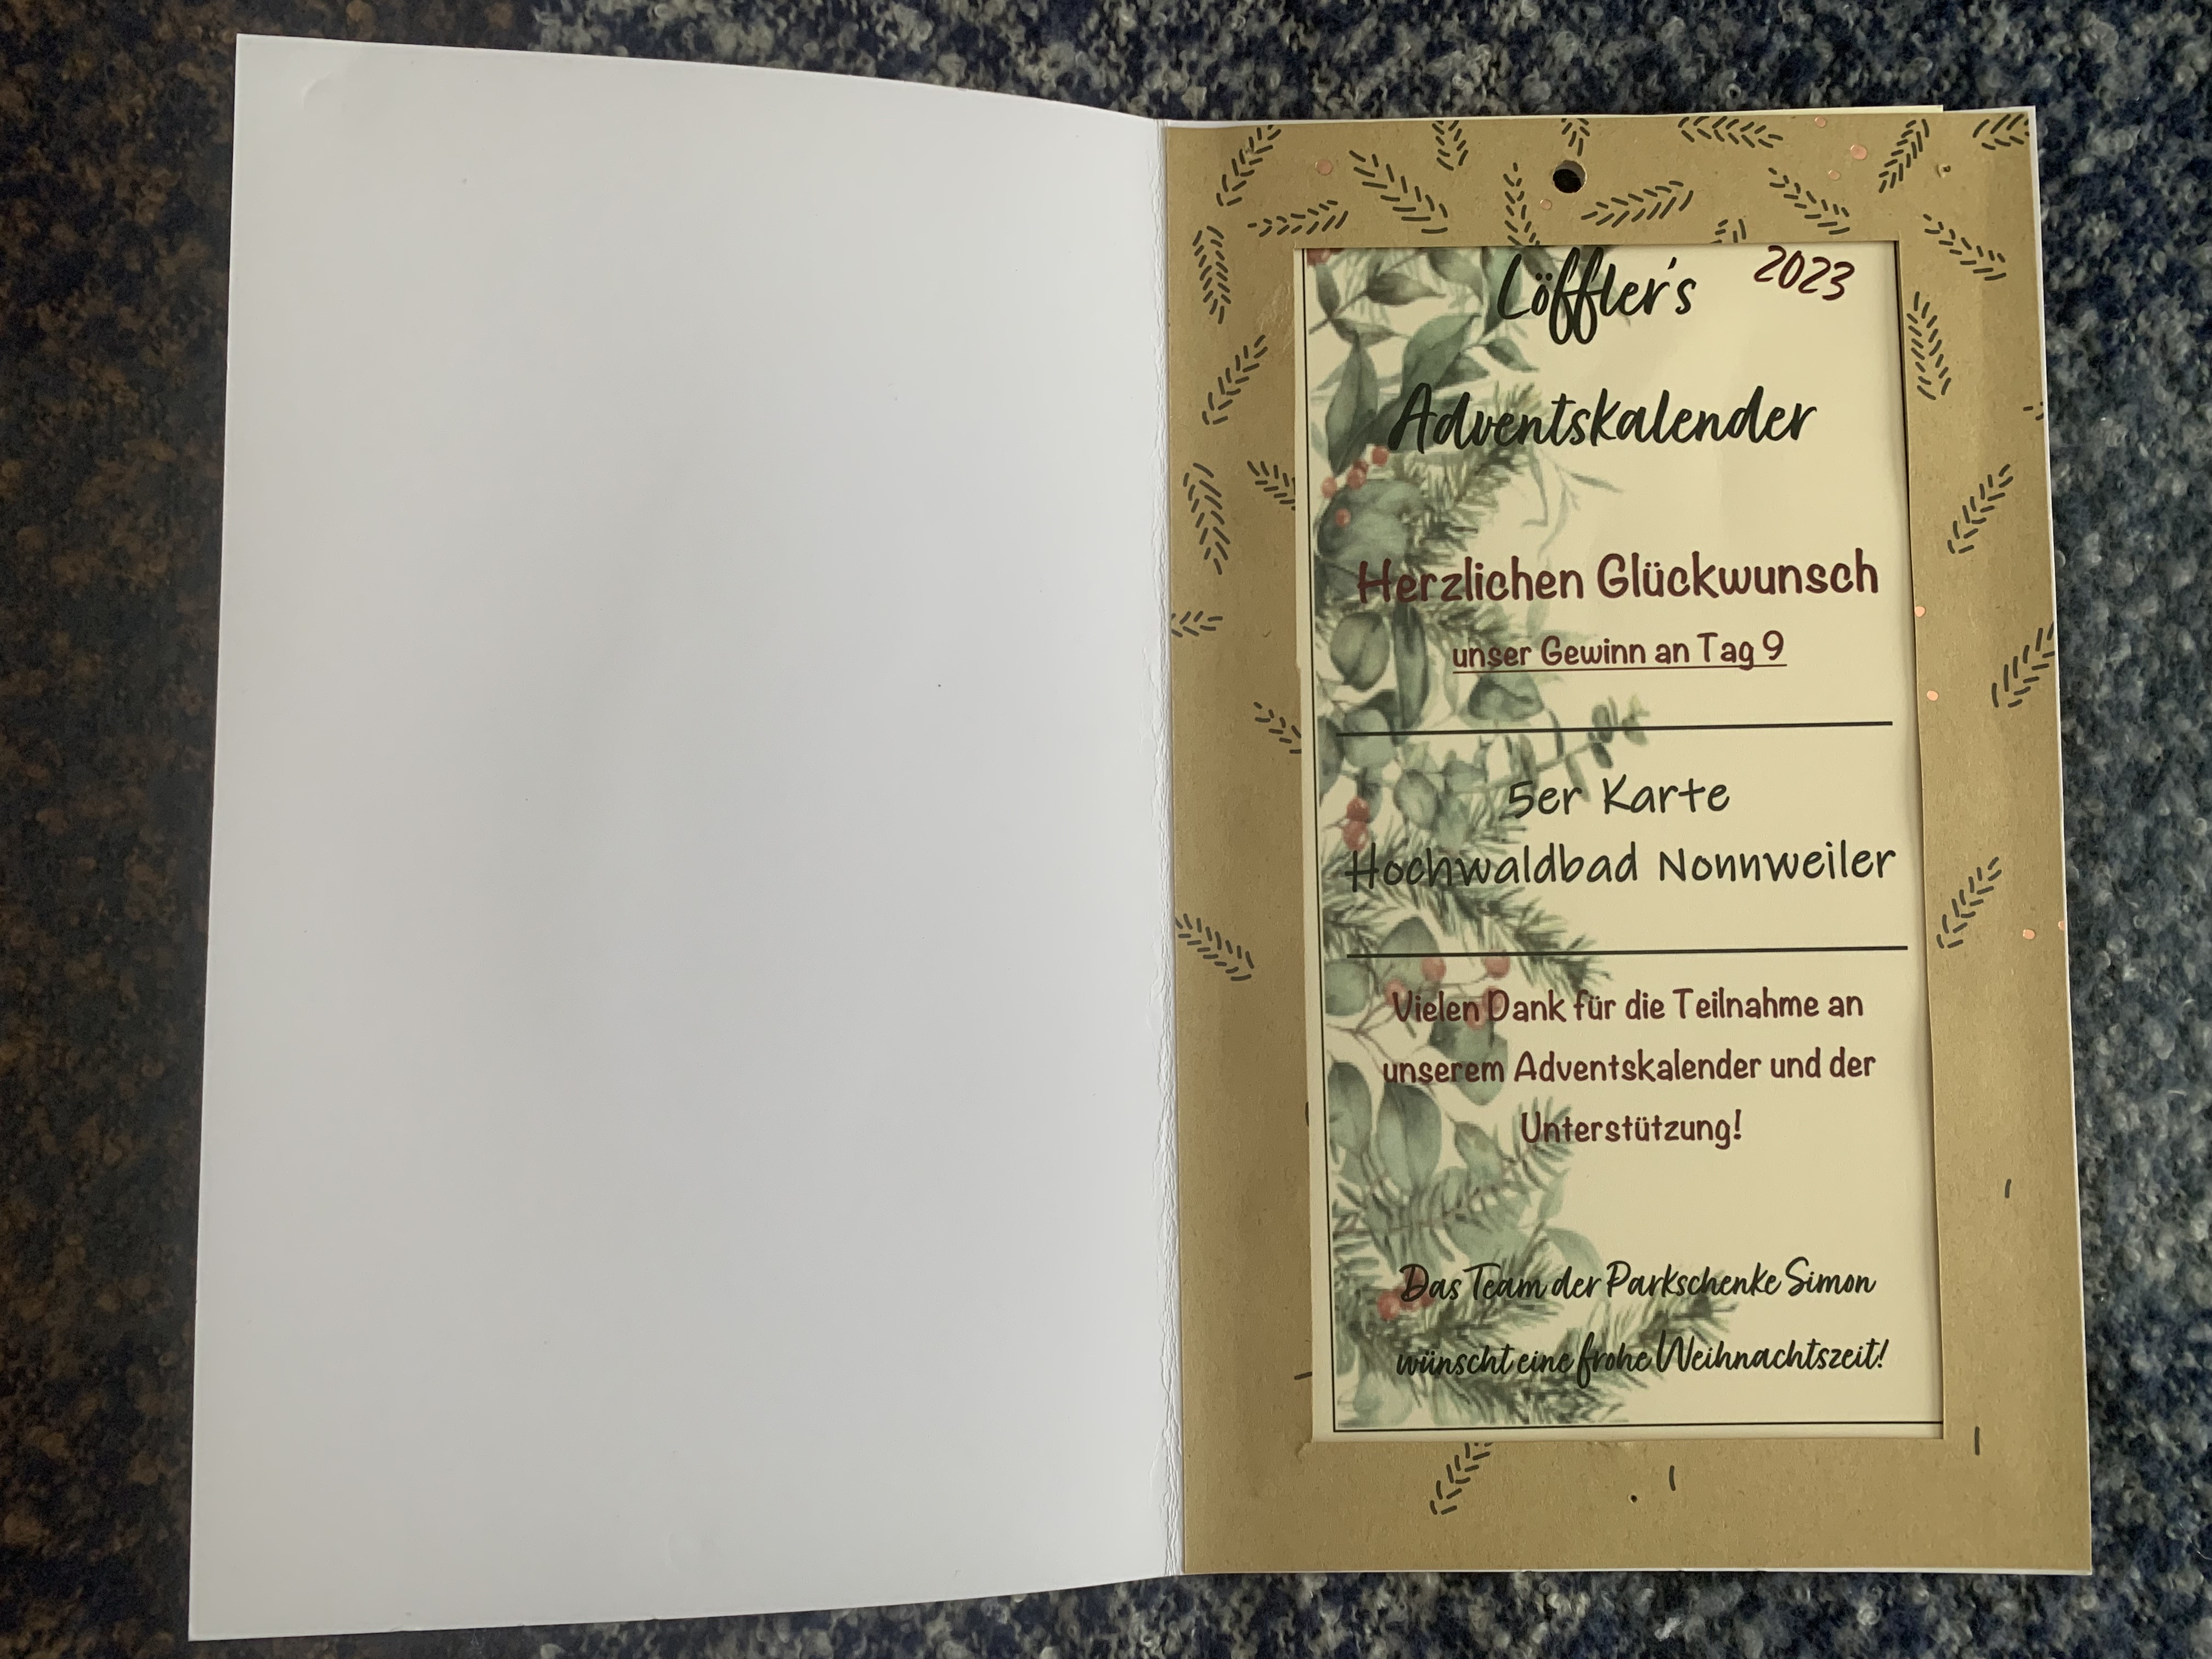 Löffler's 2023
Adventskalender
Herzlichen Glückwunsch
unser Gewinn an Tag 9
5er Karte
Hochwaldbad Nonnweiler
Vielen Dank für die Teilnahme an
unserem Adventskalender und der
Unterstützung!
Das Team der Parkschenke Simon
wünscht eine frohe Weihnachtszeit!